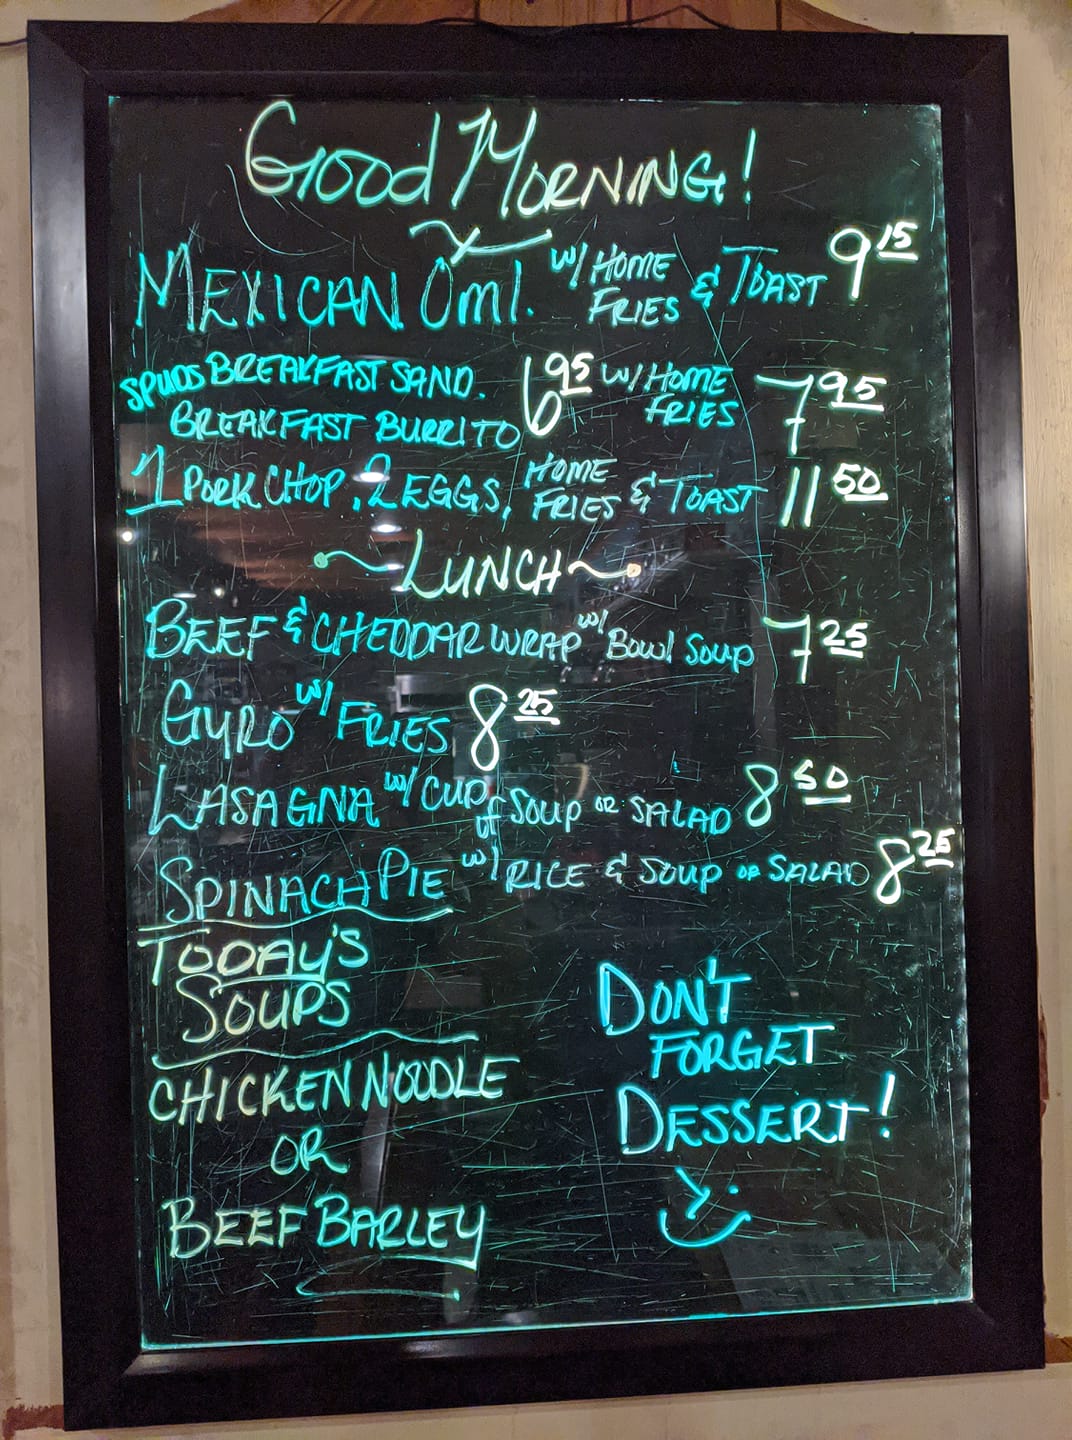 Good Morning!
Mexican Oml. w/ Home Fries & Toast 9 15
Spuds Breakfast Sand. 6 95 w/ Home Fries 7 95
Breakfast Burrito
1 Pork Chop, 2 Eggs, Home Fries & Toast 11 50
Lunch
Beef & Cheddar Wrap w/ Bowl Soup 7 25
Gyro w/ Fries 8 25
Lasagna w/ Cup of Soup or Salad 8 50
Spinach Pie w/ Rice & Soup or Salad 8 25
Today's
Soups
Chicken Noodle
or
Beef Barley
Don't
Forget
Dessert!